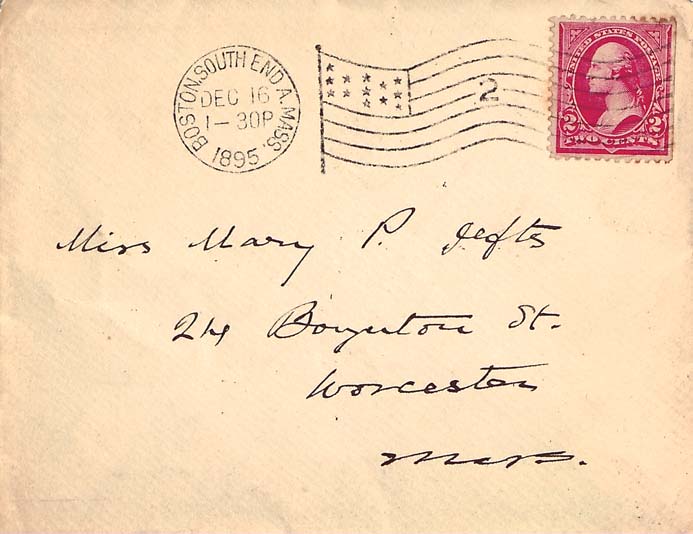 BOSTON. SOUTH END A. MASS.
DEC 16
1-30P
1895
2
UNITED STATES POSTAGE
2 2
TWO CENTS
Miss Mary P. Jefts
24 Boynton St.
Worcester
Mass.